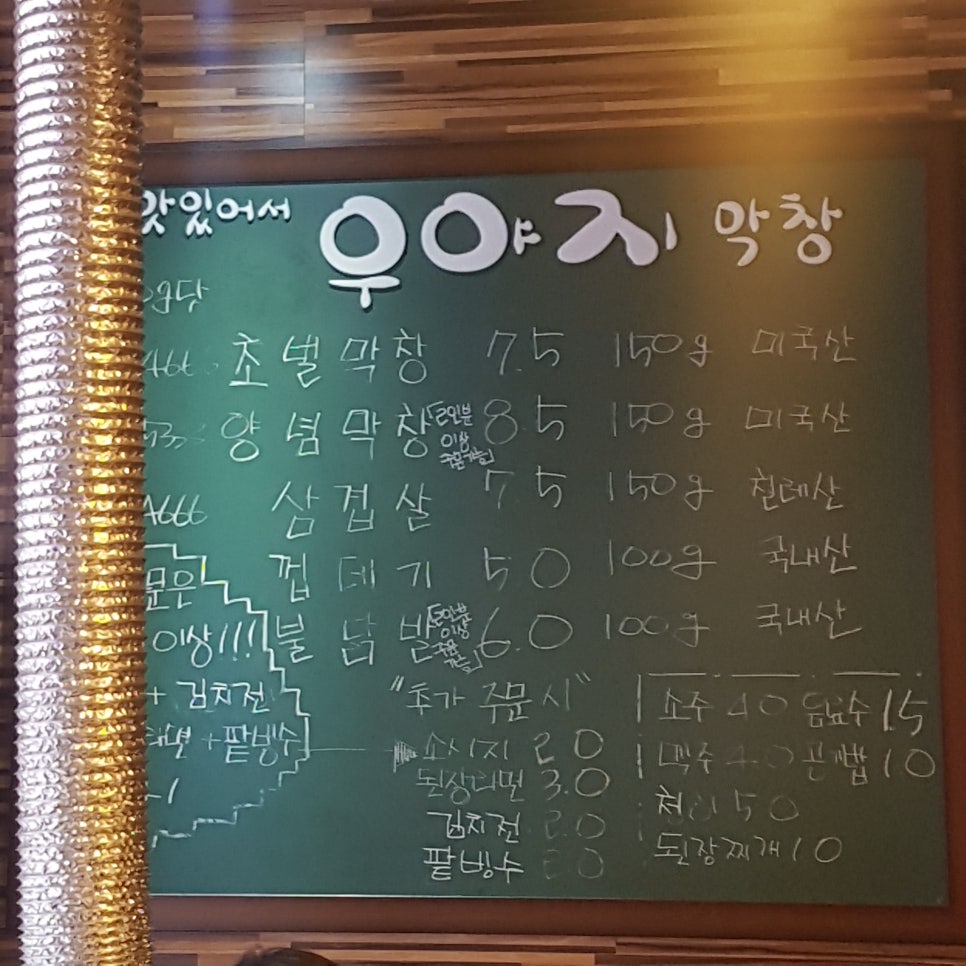 맛있어서 우야지 막창
g당
초벌 막창 7.5 150g 미국산
양념 막창 「2인분 이상 주문가능」 8.5 150g 미국산
A666 삼겹살 7.5 150g 칠레산
문은 껍데기 5.0 100g 국내산
이상!!! 불닭발 「2인분 이상 주문 가능」 6.0 100g 국내산
+ 김치전 "추가 주문 시" 소주 4.0 음료수 1.5
+ 팥빙수 소시지 2.0 맥주 4.0 공기밥 1.0
된장라면 3.0 5.0
김치전 2.0 된장찌개 1.0
팥빙수 2.0